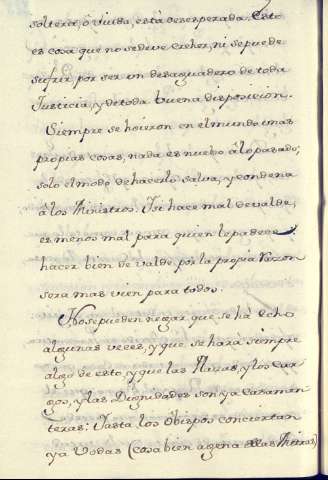 soltera, ò viuda, està desesperada. Esto
es cosa que no se deve creher, ni se puede
sufrir, por ser un desaguadero de toda
Justicia, y de toda buena disposicion.
Siempre se hoiron en el mundo unas
propias cosas, nada es nuebo à lo pasado;
solo el modo de hacerlo salva, y condena
à los Ministros. Y si hace mal de valde,
es menos mal para quien le padece
hacer bien de valde, por la propia Razon
sera mas vien para todos.
No se pueden negar que se hà echo
algunas veces, y que se hara siempre
algo de esto, y que las Plazas, y los Car
gos, y las Dignidades son ya casamen
teras: Jasta los Obispos conciertan
ya Vodas (cosa bien agena de las Mitras)